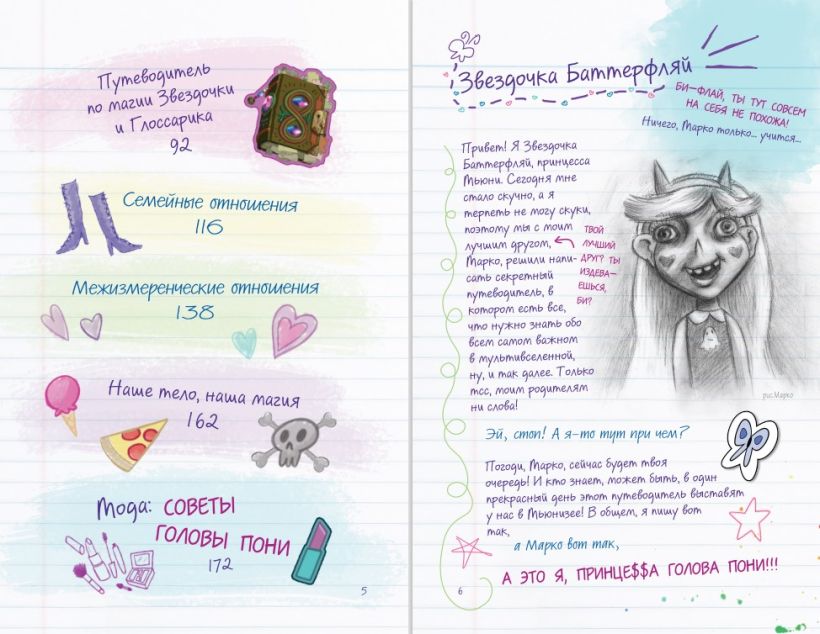 Путеводитель
по магии Звездочки
и Глоссарика
92
Семейные отношения
116
Межизмеренческие отношения
138
Наше тело, наша магия
162
Мода: СОВЕТЫ
ГОЛОВЫ ПОНИ
172
5
Звездочка Баттерфляй
БИ-ФЛАЙ, ТЫ ТУТ СОВСЕМ
НА СЕБЯ НЕ ПОХОЖА!
Ничего, Марко только... учится...
Привет! Я Звездочка
Баттерфляй, принцесса
Мьюни. Сегодня мне
стало скучно, а я
терпеть не могу скуки,
поэтому мы с моим
лучшим другом,
Марко, решили напи-
сать секретный
путеводитель, в
котором есть все,
что нужно знать обо
всем самом важном
в мультивселенной,
ну, и так далее. Только
тсс, моим родителям
ни слова!
ТВОЙ
ЛУЧШИЙ
ДРУГ? ТЫ
ИЗДЕВА-
ЕШЬСЯ,
БИ?
рис.Марко
Эй, стоп! А я-то тут при чем?
Погоди, Марко, сейчас будет твоя
очередь! И кто знает, может быть, в один
прекрасный день этот путеводитель выставят
у нас в Мьюнизее! В общем, я пишу вот
так,
а Марко вот так,
А ЭТО Я, ПРИНЦЕ$$А ГОЛОВА ПОНИ!!!
6